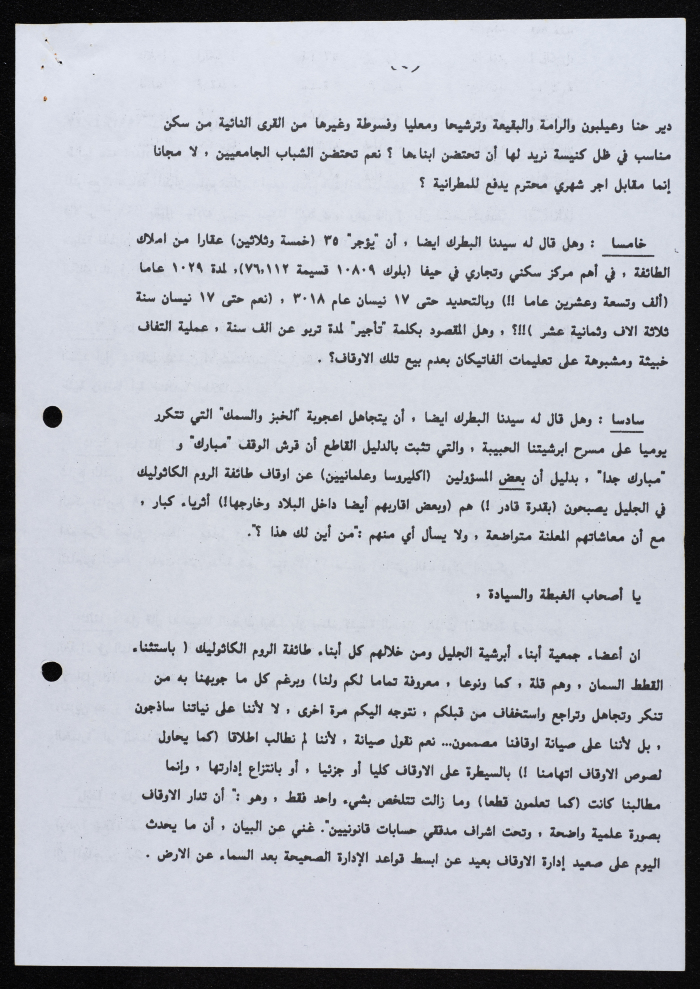 دير حنا وعيلبون والرامة والبقيعة وترشيحا ومعليا وفسوطة وغيرها من القرى النائية من سكن
مناسب في ظل كنيسة نريد لها أن تحتضن ابناءها ؟ نعم تحتضن الشباب الجامعيين , لا مجانا
إنما مقابل اجر شهري محترم يدفع للمطرانية ؟
خامسا : وهل قال له سيدنا البطرك ايضا , أن "يؤجر" ٣٥ (خمسة وثلاثين) عقارا من املاك
الطائفة , في أهم مركز سكني وتجاري في حيفا (بلوك ١٠٨٠٩ قسيمة ٧٦,١١٢), لمدة ١٠٢٩ عاما
(ألف وتسعة وعشرين عاما !!) وبالتحديد حتى ١٧ نيسان عام ٣٠١٨ , (نعم حتى ١٧ نيسان سنة
ثلاثة الاف وثمانية عشر )!!؟ , وهل المقصود بكلمة "تأجير" لمدة تربو عن الف سنة , عملية التفاف
خبيثة ومشبوهة على تعليمات الفاتيكان بعدم بيع تلك الاوقاف؟ .
سادسا : وهل قال له سيدنا البطرك ايضا , أن يتجاهل اعجوبة "الخبز والسمك" التي تتكرر
يوميا على مسرح ابرشيتنا الحبيبة , والتي تثبت بالدليل القاطع أن قرش الوقف "مبارك" و
"مبارك جدا" , بدليل أن بعض المسؤولين (اكليروسا وعلمانيين) عن اوقاف طائفة الروم الكاثوليك
في الجليل يصبحون (بقدرة قادر !) هم (وبعض اقاربهم أيضا داخل البلاد وخارجها!) أثرياء كبار ,
مع أن معاشاتهم المعلنة متواضعة , ولا يسأل أي منهم :"من أين لك هذا ؟".
يا أصحاب الغبطة والسيادة ,
ان أعضاء جمعية أبناء أبرشية الجليل ومن خلالهم كل أبناء طائفة الروم الكاثوليك ( باستثناء
القطط السمان , وهم قلة , كما ونوعا , معروفة تماما لكم ولنا) وبرغم كل ما جوبهنا به من
تنكر وتجاهل وتراجع واستخفاف من قبلكم , نتوجه اليكم مرة اخرى , لا لأننا على نياتنا ساذجون
, بل لأننا على صيانة اوقافنا مصممون... نعم نقول صيانة , لأننا لم نطالب اطلاقا (كما يحاول
لصوص الاوقاف اتهامنا !) بالسيطرة على الاوقاف كليا أو جزئيا , أو بانتزاع إدارتها , وإنما
مطالبنا كانت (كما تعلمون قطعا) وما زالت تتلخص بشيء واحد فقط , وهو :" أن تدار الاوقاف
بصورة علمية واضحة , وتحت اشراف مدققي حسابات قانونيين". غني عن البيان , أن ما يحدث
اليوم على صعيد إدارة الاوقاف بعيد عن ابسط قواعد الإدارة الصحيحة بعد السماء عن الارض .